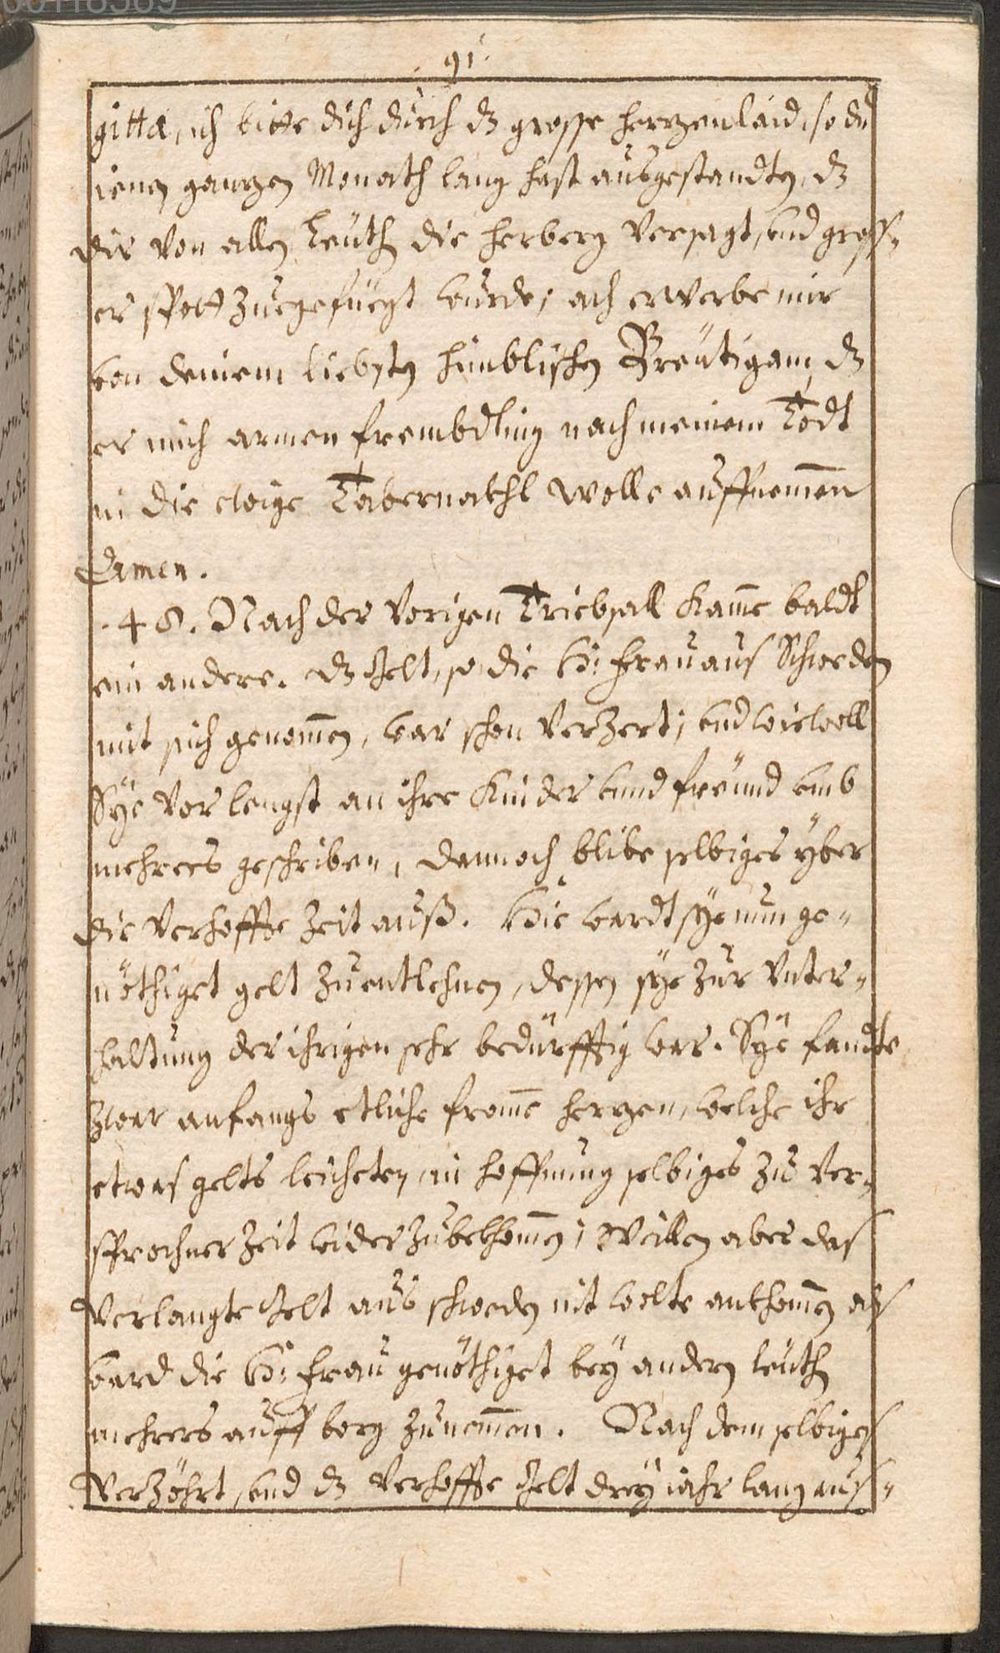 00118569
91.
gitta, ich bitte dich durch dz grosse hertzenlaid, so du
ienen gantzen Monath lang hast ausgestandten, dz
dir von allen Leuthen die herberg versagt, und gross-
er spott zuegefuegt wurde; ach erwerbe mir
von deinem liebsten himblischen Breutigam, dz
er mich armen frembdling nach meinem Todt
in die ewige Tabernackhl wolle auffnem̄en
Amen.
48. Nach der vorigen Triebsall kam̄e baldt
ein andere. dz Gelt, so die H: Frau aus Schweden
mit sich genom̄en, war schon verzert; und wiewoll
Sÿe vor lengst an ihre Kinder und freund umb
mehrers geschriben, dannoch blibe selbiges yber
die verhoffte Zeit auß. Hie wardt sÿe nun ge-
nöthiget gelt zu entlehnen, dessen sÿe zur unter-
haltung der ihrigen sehr bedürfftig war. Sÿe fandte
zwar anfangs etliche from̄e hertzen, welche ihr
etwas gelts leicheten, in hoffnung selbiges zu ver-
sprochner Zeit wider zubekhom̄en; Weillen aber das
verlangte Gelt aus schweden nit wolte ankhom̄en als
ward die H: Frau genöthiget beÿ andern leuthen
mehrers auff borg zunem̄en. Nach dem selbiges
verzöhrt, und dz verhoffte Gelt dreÿ iahr lang aus-